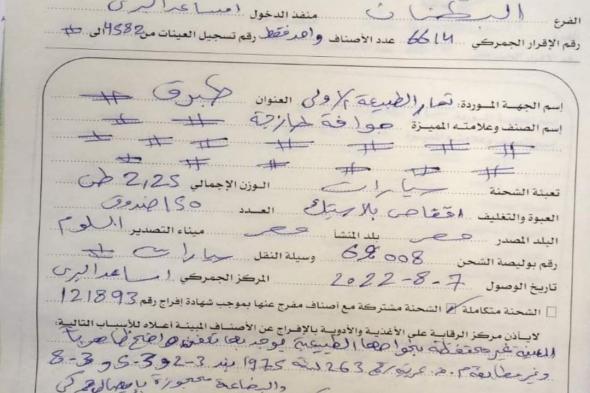 الفرع البطنان منفذ الدخول امساعد البري
رقم الإقرار الجمركي 6614 عدد الأصناف واحد فقط رقم تسجيل العينات من 4582 الى #
إسم الجهة الموردة: ثمار الطبيعة الاولى العنوان طبرق #
إسم الصنف وعلامته المميزة: جوافة طازجة # #
# # # # # #
# # # #
تعبئة الشحنة سيارات الوزن الإجمالي 2,25 طن
العبوة والتغليف اقفاص بلاستيك العدد 150 صندوق
البلد المصدر مصر بلد المنشأ مصر ميناء التصدير السلوم
رقم بوليصة الشحن 008 وسيلة النقل سيارات #
تاريخ الوصول 7-8-2022 المركز الجمركي امساعد البري
الشحنة متكاملة الشحنة مشتركة مع أصناف مفرج عنها بموجب شهادة إفراج رقم 121893
لا يأذن مركز الرقابة على الأغذية والأدوية بالإفراج عن الأصناف المبينة أعلاه للأسباب التالية:
العينة غير محتفظة بخواصها الطبيعية يوجد بها تعفن واضح ظاهريا
وغير مطابقة م.ق 263 لسنة 1975 بند 3-2 و 3-5 و 3-8
والبضاعة محجوزة